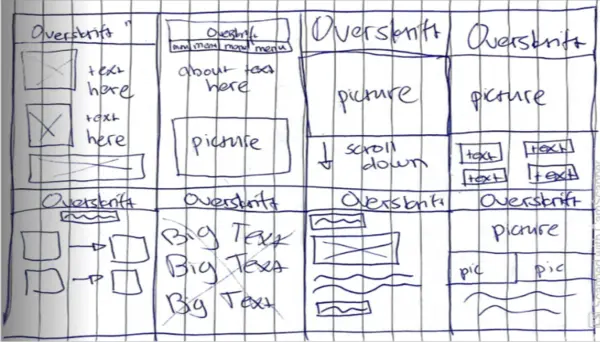 Overskrift "
text
here
text
here
Overskrift
menu menu menu menu
about text
here
picture
Overskrift
picture
scroll
down
Overskrift
picture
text text
text text
Overskrift
Overskrift
Big Text
Big Text
Big Text
Overskrift
Overskrift
picture
pic pic